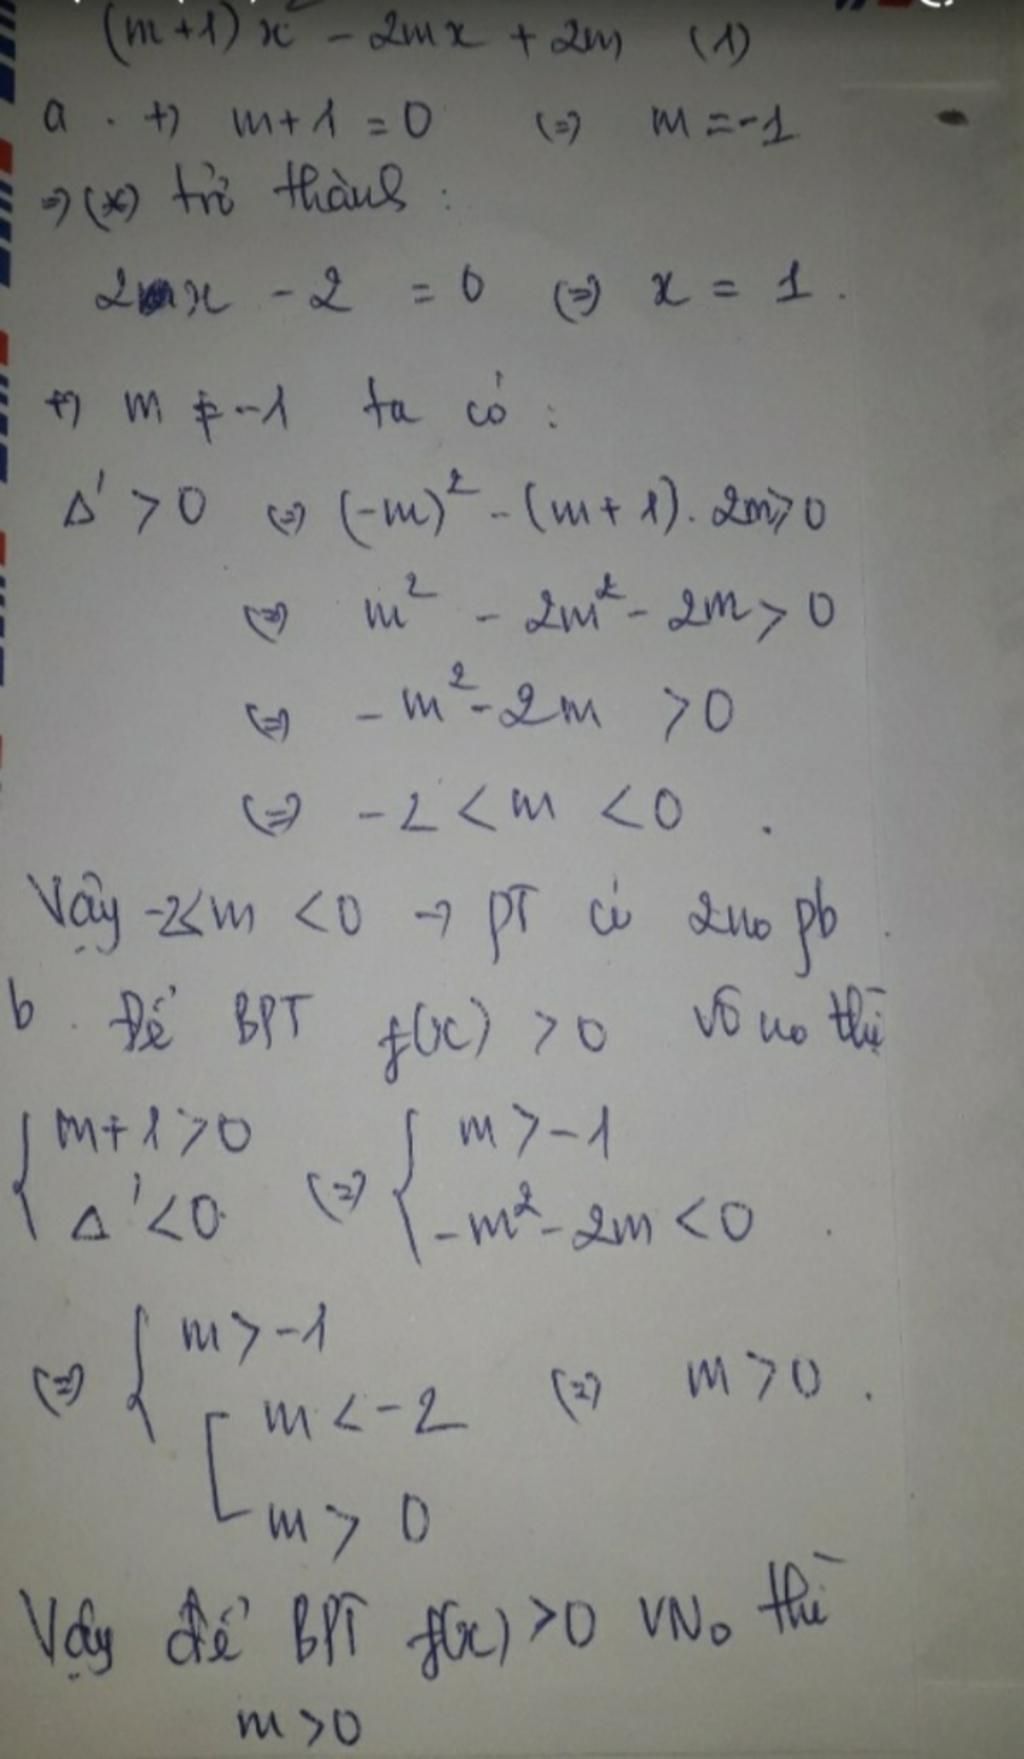 (m+1)x² - 2mx + 2m (1)
a. +) m+1 = 0 (=) m = -1
=> (*) trở thành :
2x - 2 = 0 (=) x = 1.
+) m ≠ -1 ta có :
Δ' > 0 (=) (-m)² - (m+1). 2m > 0
(=) m² - 2m² - 2m > 0
(=) - m² - 2m > 0
(=) -2 < m < 0.
Vậy -2 < m < 0 → PT có 2no pb.
b. Để BPT f(x) > 0 vô no thì
{ m+1 > 0 (=) { m > -1
Δ' < 0. -m² - 2m < 0.
(=) { m > -1
[ m < -2 (=) m > 0.
m > 0
Vậy để BPT f(x) > 0 VNo thì
m > 0